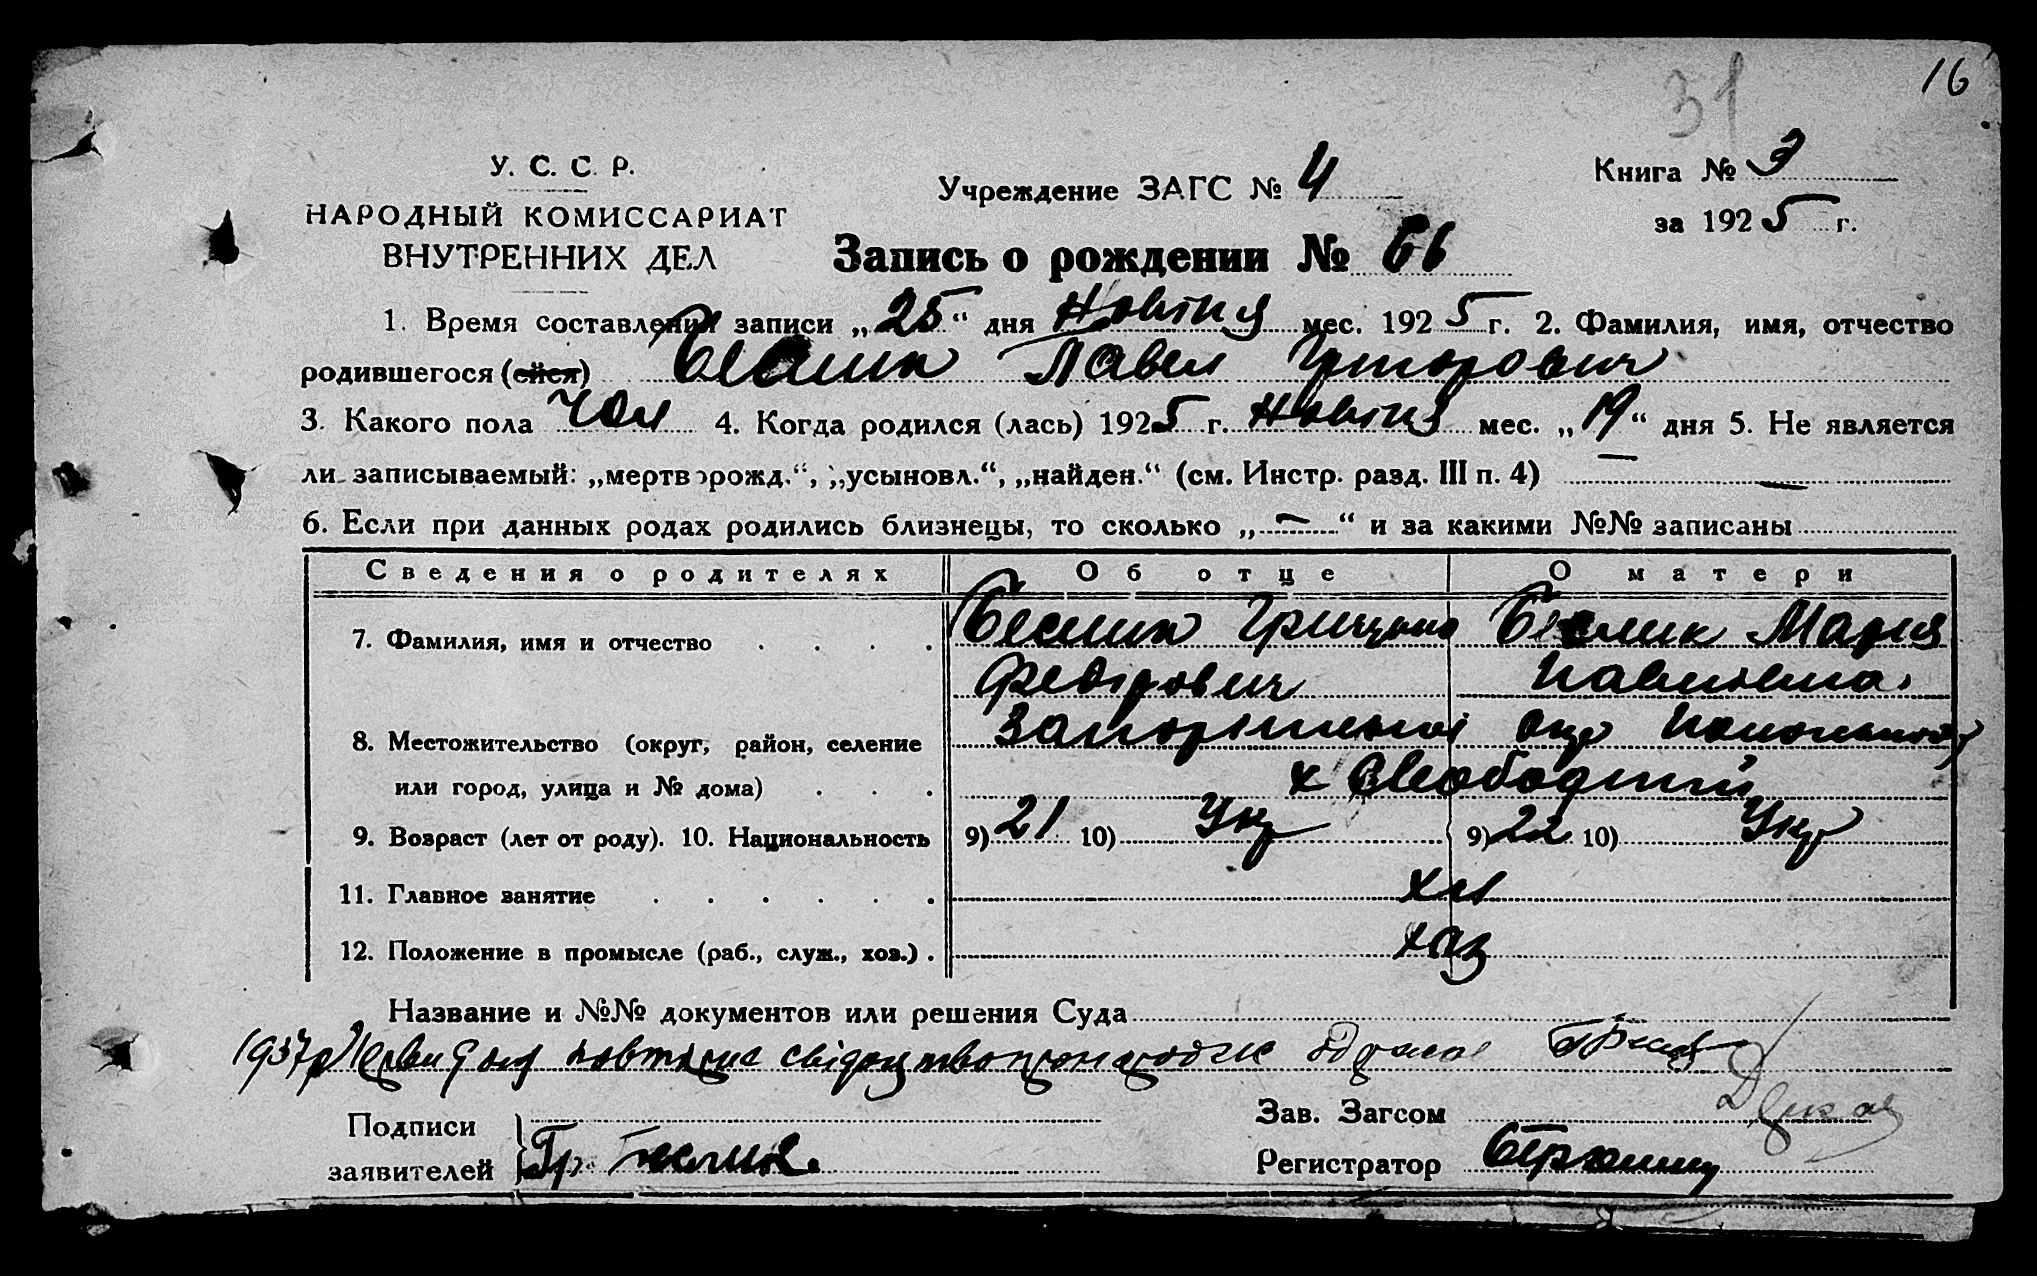 16
31
У. С. С. Р.
НАРОДНЫЙ КОМИССАРИАТ
ВНУТРЕННИХ ДЕЛ
Учреждение ЗАГС № 4
Книга № 3
за 1925 г.
Запись о рождении № 66
1. Время составления записи „25“ дня Новтня мес. 1925 г. 2. Фамилия, имя, отчество
родившегося (ейся) Павел Григорович
3. Какого пола Чол 4. Когда родился (лась) 1925 г. Новтня мес. „19“ дня 5. Не является
ли записываемый: „мертворожд.“, „усыновл.“, „найден.“ (см. Инстр. разд. III п. 4) —
6. Если при данных родах родились близнецы, то сколько „—“ и за какими №№ записаны
Сведения о родителях Об отце О матери
7. Фамилия, имя и отчество Теслик Грицько Теслик Мария
Федорович Павловна
8. Местожительство (округ, район, селение Запорізької окр
или город, улица и № дома) х Свободний
9. Возраст (лет от роду). 10. Национальность 9) 21 10) Укр 9) 22 10) Укр
11. Главное занятие хл
12. Положение в промысле (раб., служ., хоз.) хаз
Название и №№ документов или решения Суда
1937р повторне свідоцтво одержав
Подписи
заявителей Гр. Теслик
Зав. Загсом
Регистратор